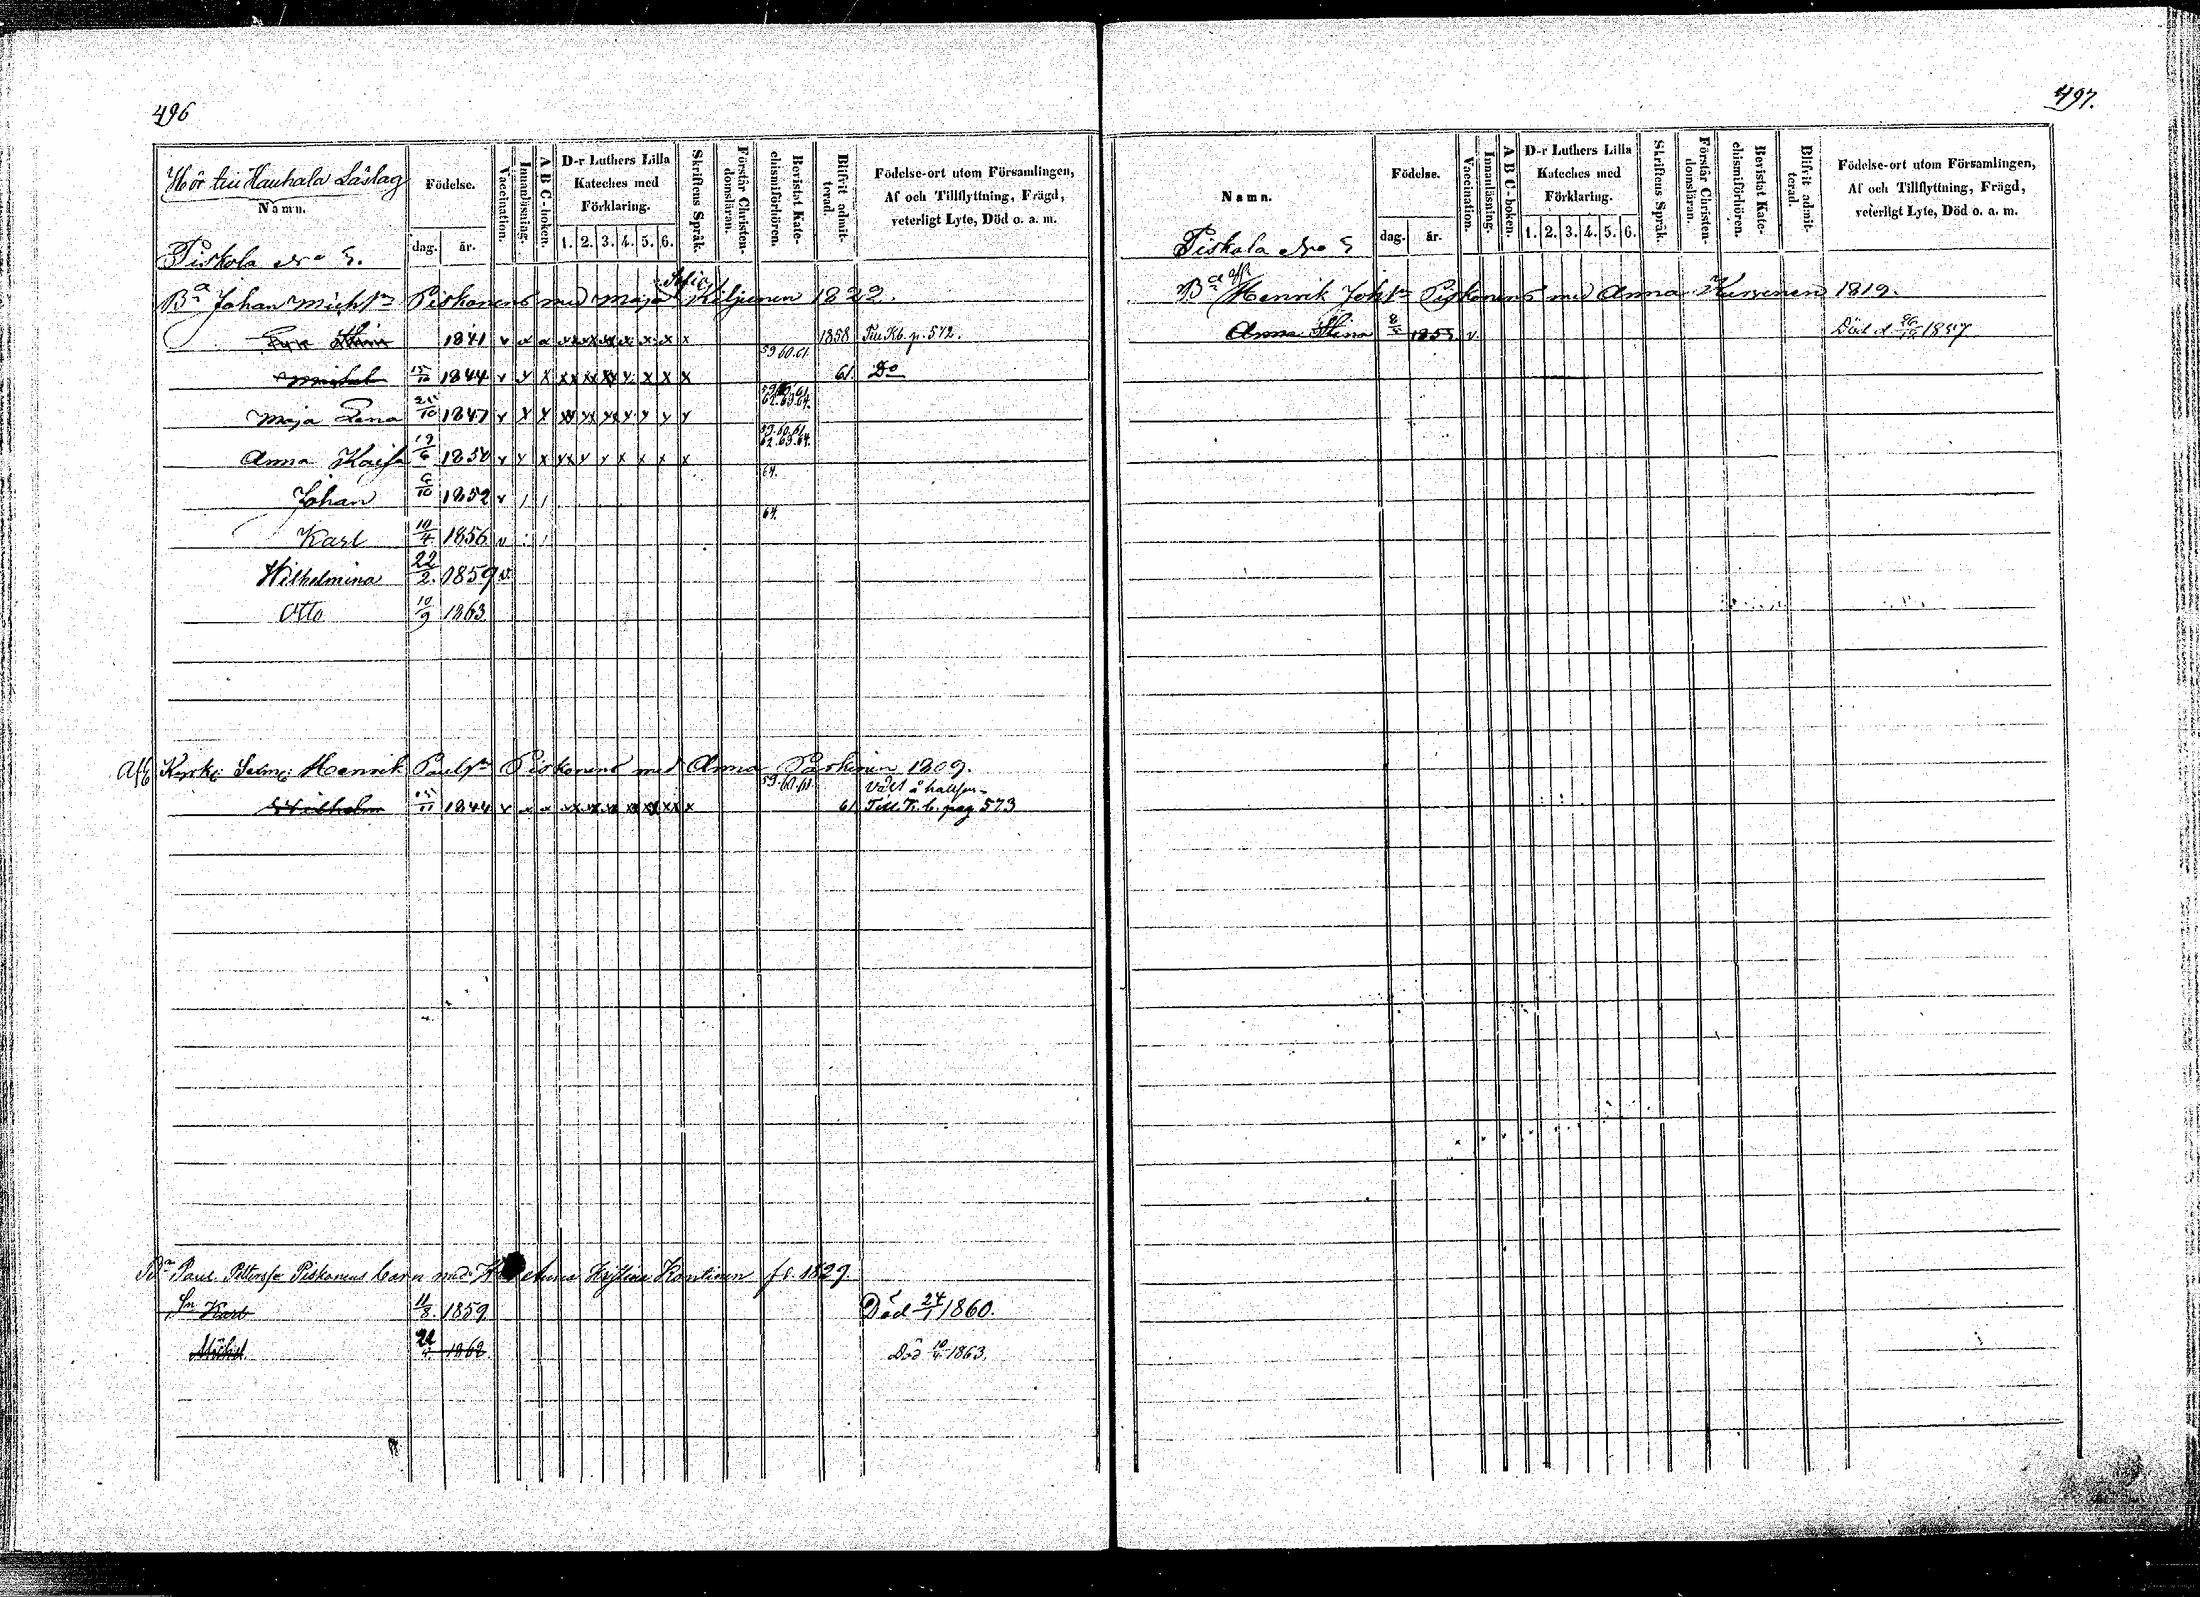 496
Hör till Hauhala Läslag
Namn. Födelse. dag. år. Vaccination. Innanläsning. A B C-boken. D-r Luthers Lilla Kateches med Förklaring. 1. 2. 3. 4. 5. 6. Skriftens Språk. Förstår Christendomsläran. Bevistat Katechismiförhören. Blifvit admitterad. Födelse-ort utom Församlingen, Af och Tillflyttning, Frägd, veterligt Lyte, Död o. a. m.
Piskola No 5.
Johan Michsn Piskonens med Maja Sofia Kiljunen 1822.
Stina 1841 v x x 1858 Till Kb. p. 572.
Michel 15/10 1844 v 59 60. 61. 61. Do
Maja Lena 25/10 1847 v x x 59 60 61 62. 63. 64.
Anna Kaisa 19/6 1850 v x 59. 60. 61. 62. 63. 64.
Johan 6/10 1852 v / / 64.
Karl 10/4 1856 v 64.
Wilhelmina 22/2. 1859 v.
Otto 10/9 1863
Henrik Paulsn Piskonens med Anna Paskinen 1809.
Wilhelm 15/11 1844 v x x 59. 60. 61. 61 Till K. b. pag 573
Bn Paul Pettersn Piskonens barn med Anna Kristina Kontinen f. 1829.
Sn Karl 11/8. 1859 Död 24/1 1860.
Michel 1862 Död 1863.
497.
Namn. Födelse. dag. år. Vaccination. Innanläsning. A B C-boken. D-r Luthers Lilla Kateches med Förklaring. 1. 2. 3. 4. 5. 6. Skriftens Språk. Förstår Christendomsläran. Bevistat Katechismiförhören. Blifvit admitterad. Födelse-ort utom Församlingen, Af och Tillflyttning, Frägd, veterligt Lyte, Död o. a. m.
Piskola No 5
Henrik Johsn Piskonens med Anna Kurvinen 1819.
Anna Stina 1855 v. Död d. 1857